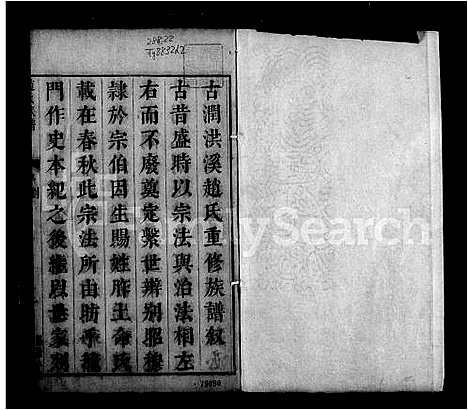 古潤洪溪趙氏重修族譜敘
古昔盛時以宗法與治法相左
右而不廢奠定繫世辨別昭穆
隸於宗伯因生賜姓胙土命氏
載在春秋此宗法所由昉乎龍
門作史本紀之後繼以世家列
FamilySearch